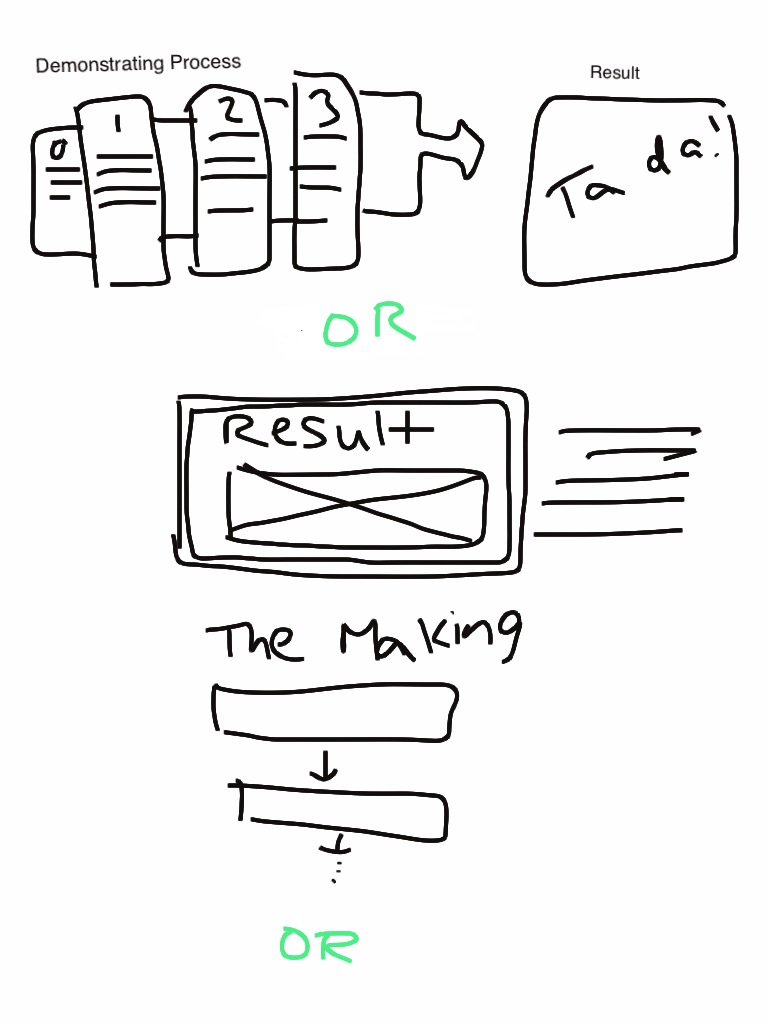 Demonstrating Process
Result
0 1 2 3
Ta da!
OR
Result
The Making
OR